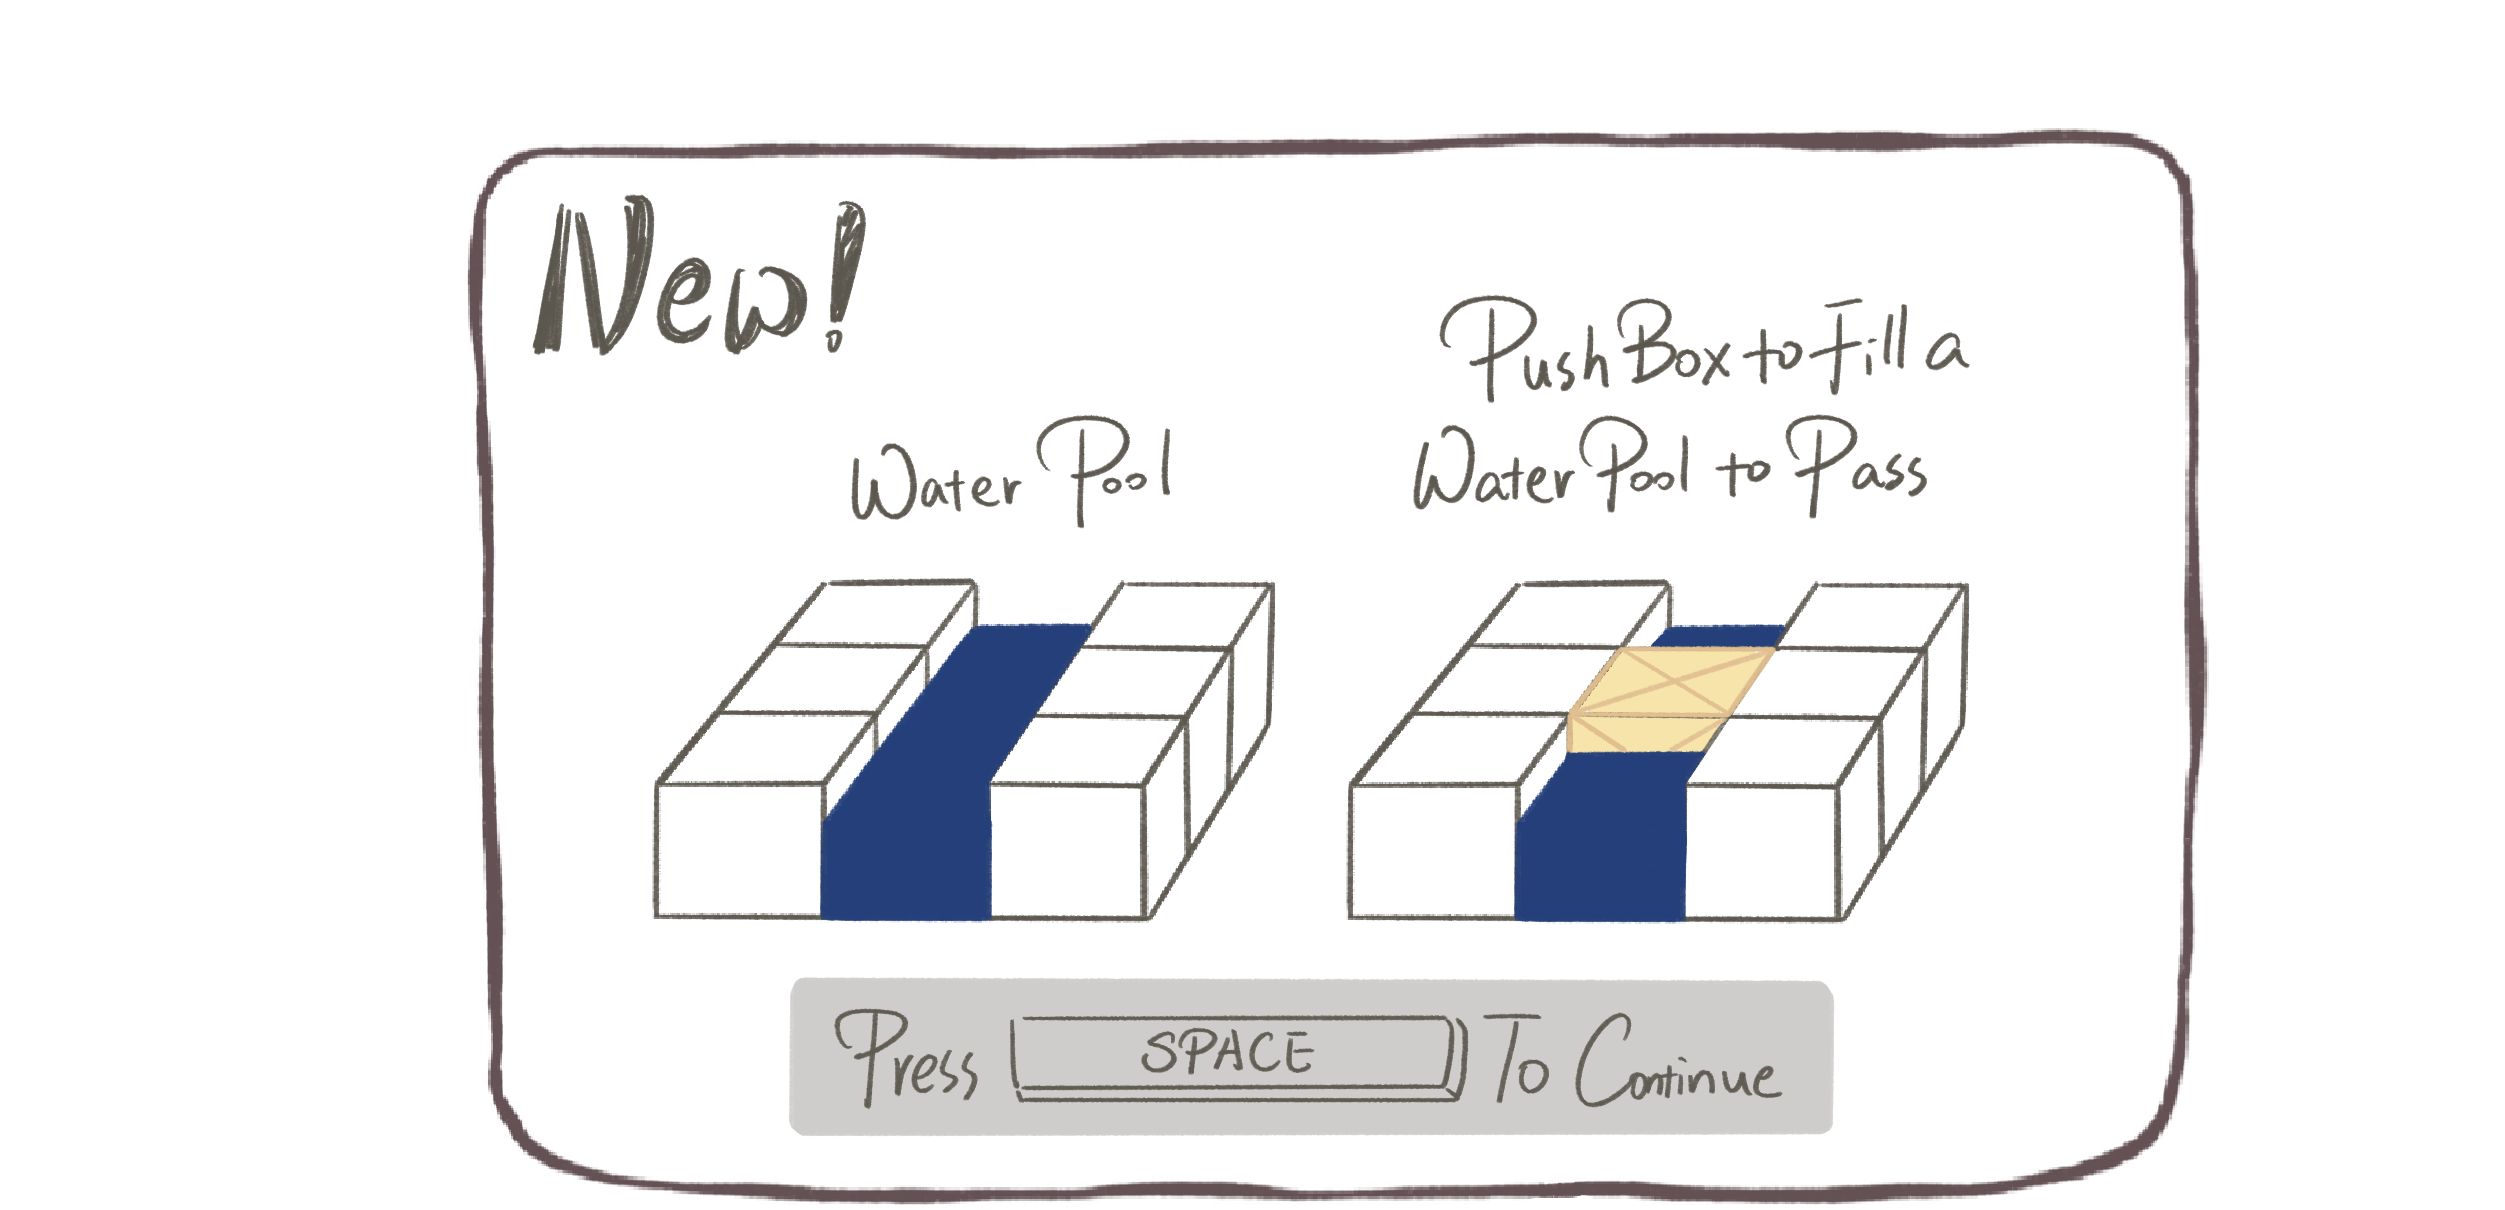 New!
Water Pool
Push Box to Fill a
Water Pool to Pass
Press SPACE To Continue